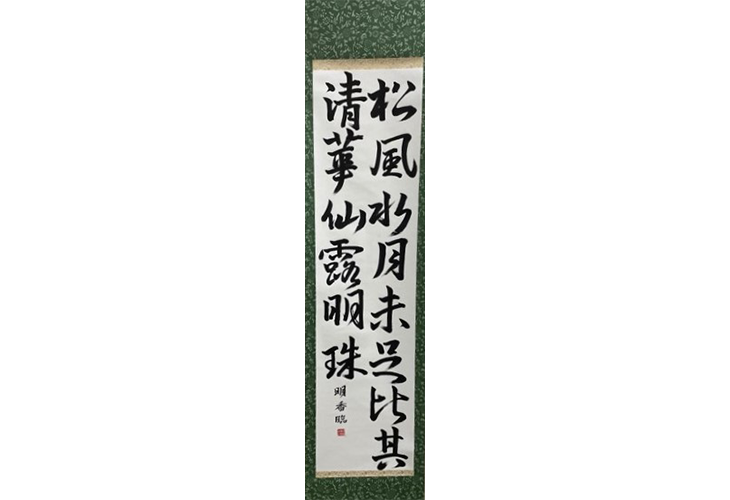 松風水月未足比其
清華仙露明珠
明香臨